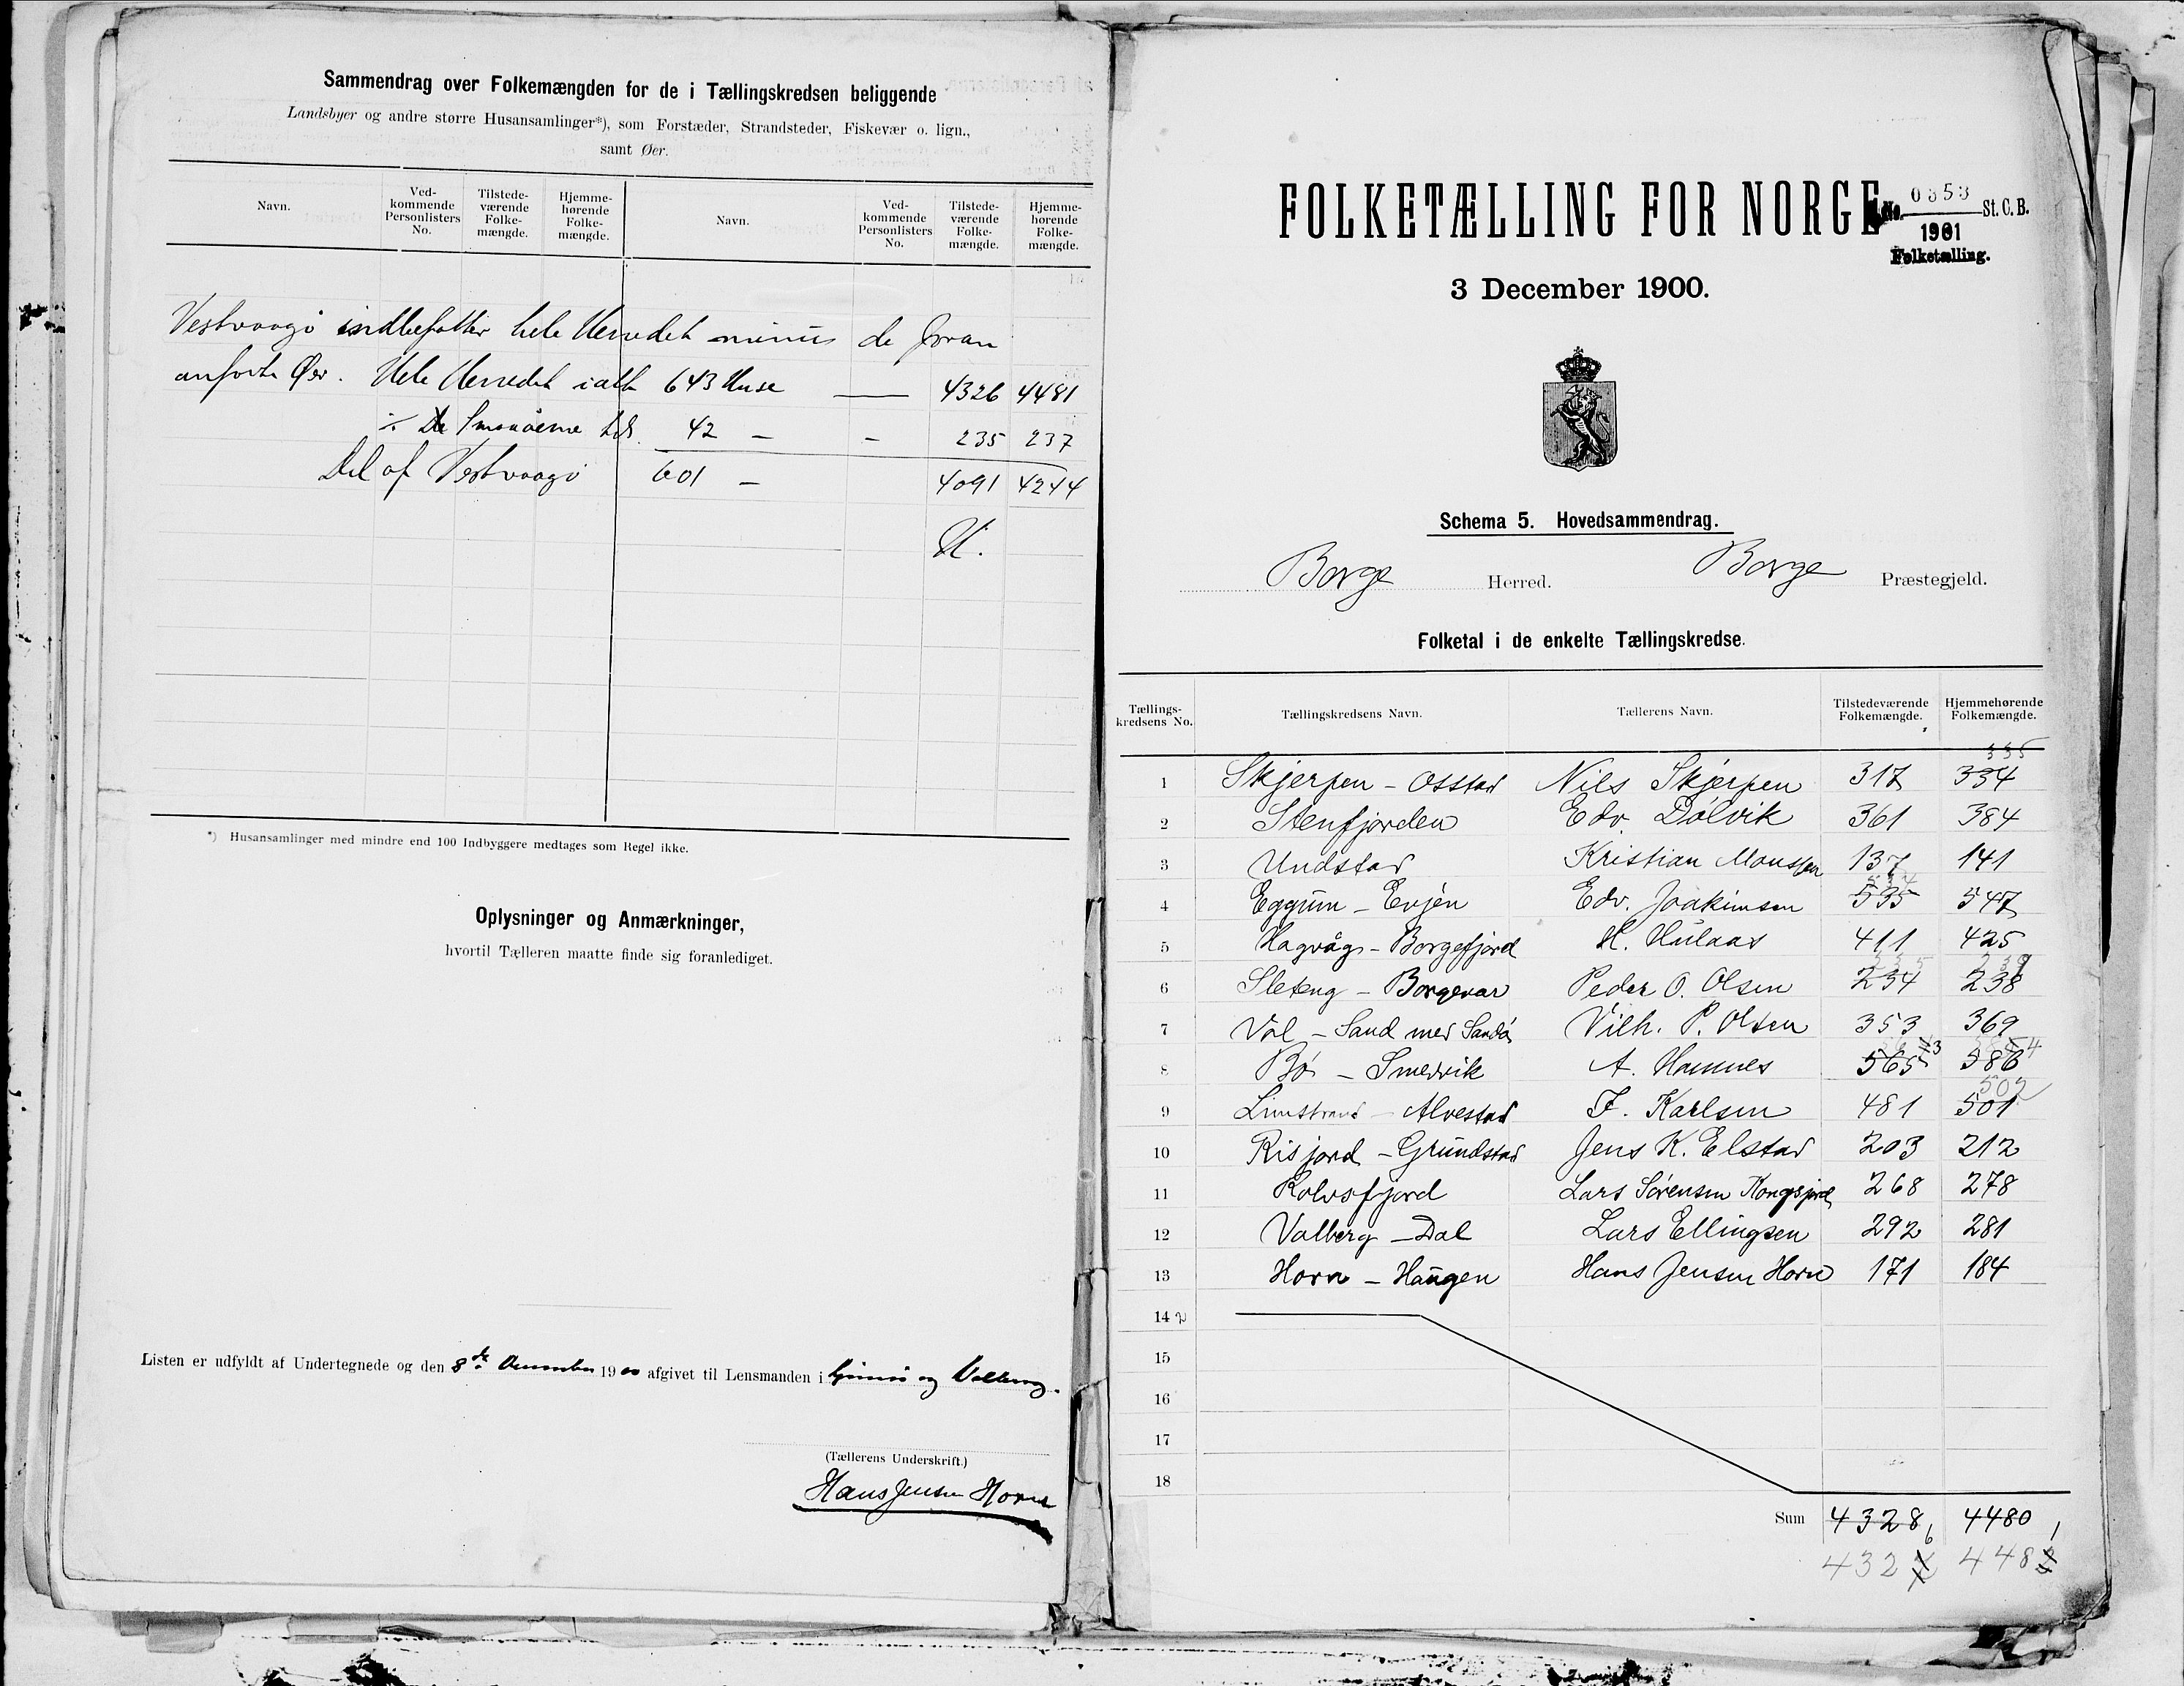 Sammendrag over Folkemængden for de i Tællingskredsen beliggende
Landsbyer og andre større Husansamlinger*), som Forstæder, Strandsteder, Fiskevær o. lign.,
samt Øer.
Navn. Ved-kommende Personlisters No. Tilstede-værende Folke-mængde. Hjemme-hørende Folke-mængde. Navn. Ved-kommende Personlisters No. Tilstede-værende Folke-mængde. Hjemme-hørende Folke-mængde.
Vestvaagø indbefatter hele Herredet minus de foran
anførte Øer. Hele Herredet ialt 643 Huse — 4326 4481
÷ De Smaaøerne 42 — - 235 237
Del af Vestvaagø 601 — 4091 4244
H.
*) Husansamlinger med mindre end 100 Indbyggere medtages som Regel ikke.
Oplysninger og Anmærkninger,
hvortil Tælleren maatte finde sig foranlediget.
Listen er udfyldt af Undertegnede og den 8de December 1900 afgivet til Lensmanden i Gimsø og Valberg.
(Tællerens Underskrift.)
Hans Jensen Horn
FOLKETÆLLING FOR NORGE
No. 0353 St. C. B.
1901
Folketælling.
3 December 1900.
Schema 5. Hovedsammendrag.
Borge Herred. Borge Præstegjeld.
Folketal i de enkelte Tællingskredse.
Tællings-kredsens No. Tællingskredsens Navn. Tællerens Navn. Tilstedeværende Folkemængde. Hjemmehørende Folkemængde.
335
1 Skjerpen - Osstad Nils Skjerpen 317 334
2 Stenfjorden Edv. Dølvik 361 384
3 Undstad Kristian Monssen 137 141
534
4 Eggum - Evjen Edv. Joakimsen 535 547
5 Hagvåg - Borgefjord H. Hulaas 411 425
235 239
6 Sleteng - Borgevar Peder O. Olsen 234 238
7 Vol - Sand med Sandø Vilh. P. Olsen 353 369
8 Bø - Smedvik A. Hamnes 565 586
502
9 Limstrand - Alvestad F. Karlsen 481 501
10 Risjord - Grundstad Jens K. Elstad 203 212
11 Rolvsfjord Lars Sørensen Kongsjord 268 278
12 Valberg - Dal Lars Ellingsen 292 281
13 Horn - Haugen Hans Jensen Horn 171 184
14
15
16
17
18
Sum 4328 4480
6 1
432 448